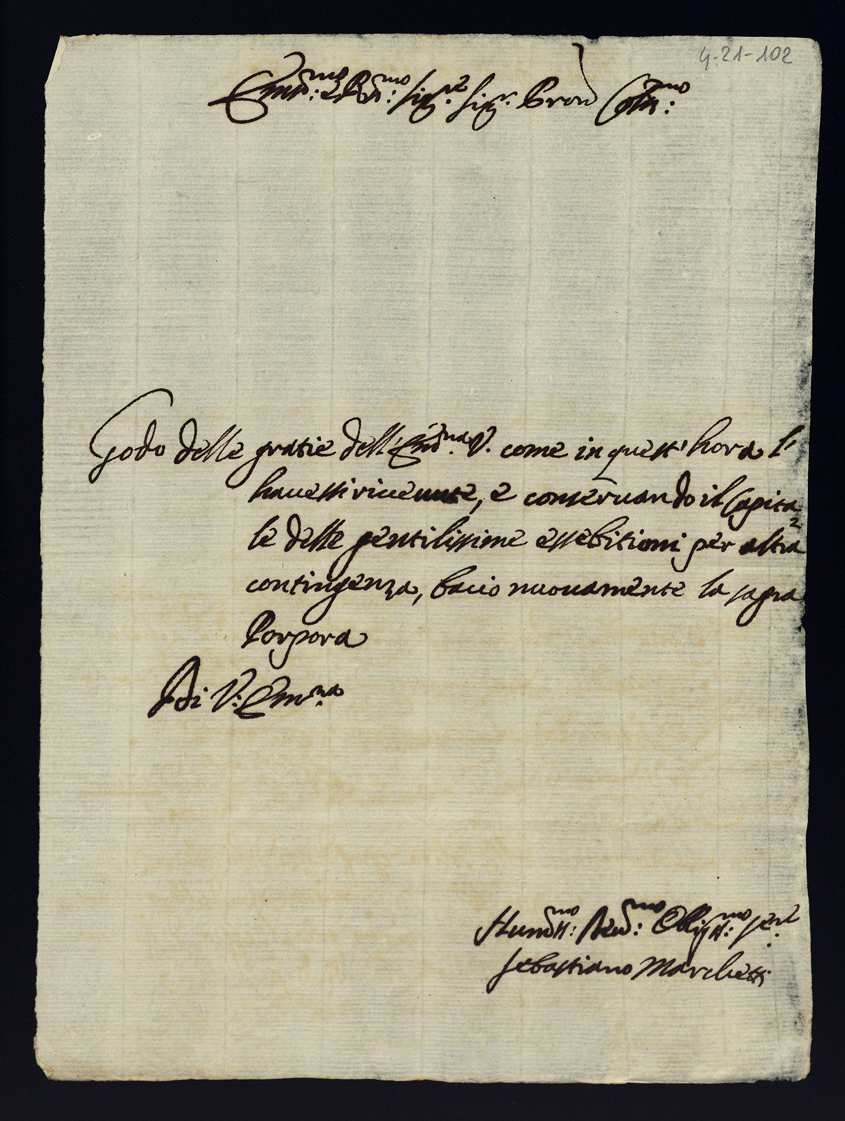 4-21-102
Em.mo e R.mo Sig.re Sig.r Pron Col.mo
Godo delle gratie dell'Em.na V. come in quest'hora l'
havessi riceuute, e conseruando il Capita
le delle gentilissime essebitioni per altra
contingenza, bacio nuouamente la sagra
Porpora
Di V. Em.na
Humiliss.mo Deu.mo Oblig.mo ser.e
Sebastiano Marchetti